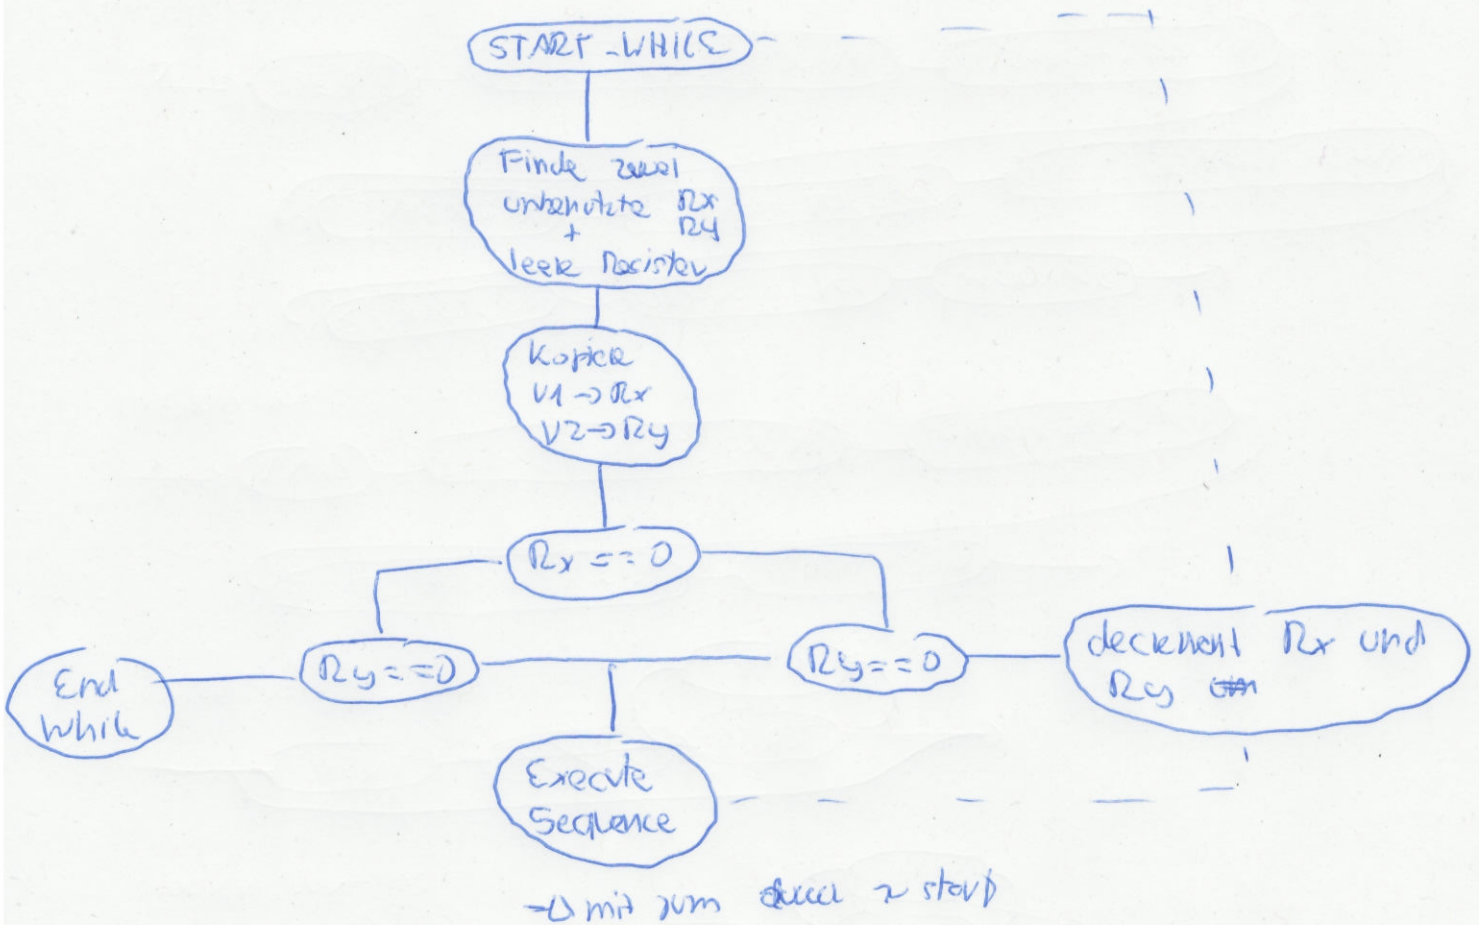 START_WHILE
Finde zwei
unbenutzte Rx
Ry
+
leere Register
Kopiere
V1 → Rx
V2 → Ry
Rx == 0
Ry == 0
Ry == 0
decrement Rx und
Ry
End
While
Execute
Sequence
→ mit jum